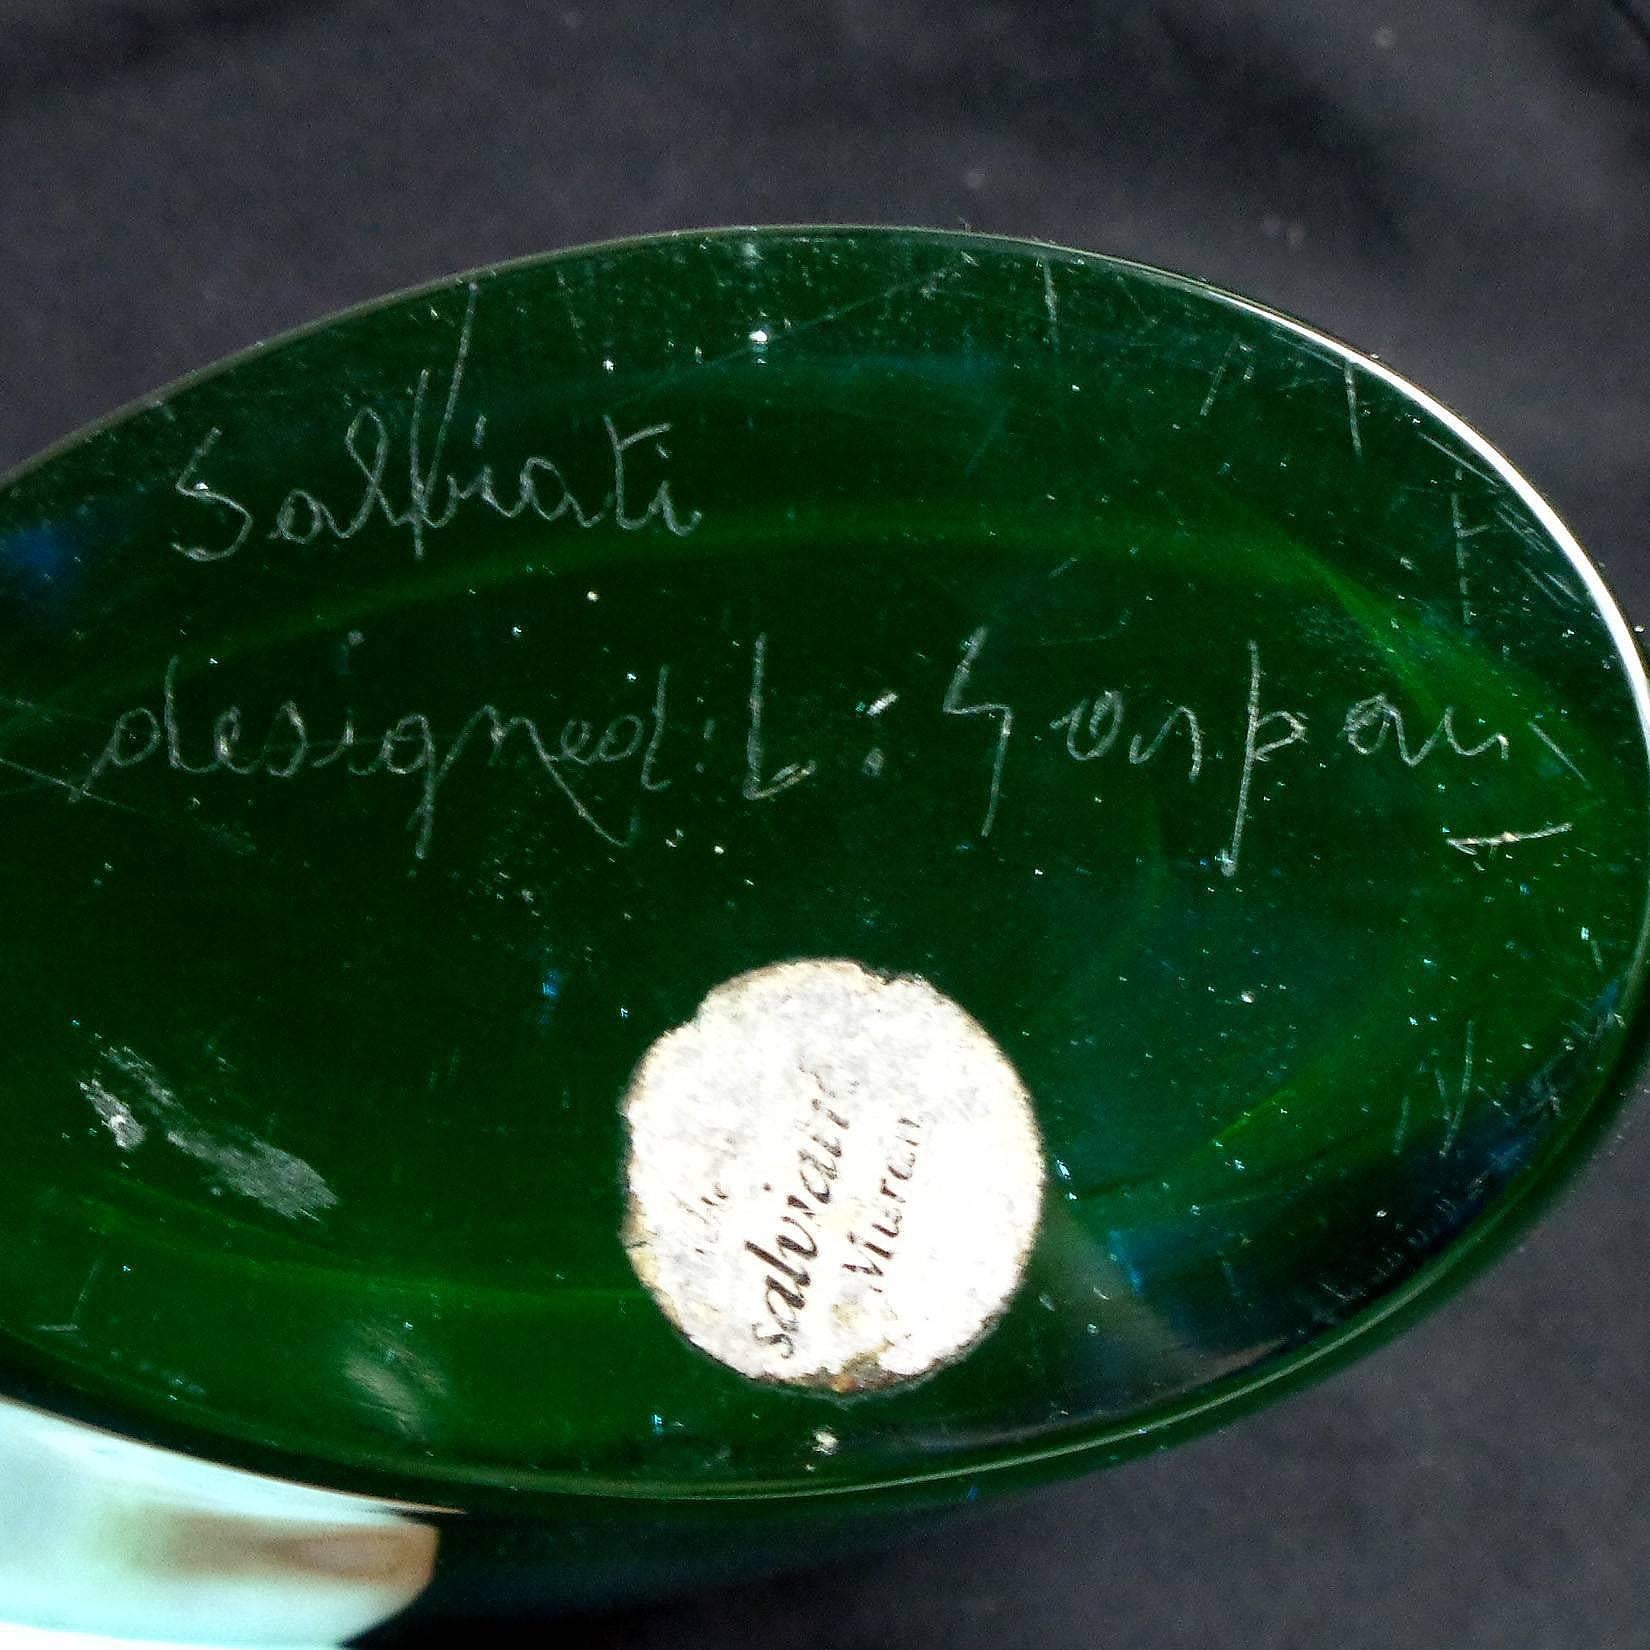 Salviati
designed: L: Gaspari
salviati
Murano